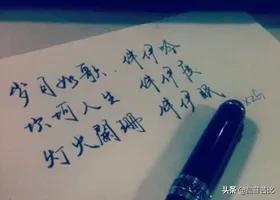 岁月如歌.伴伊吟
坎坷人生 伴伊度
灯火阑珊 伴伊眠
头条